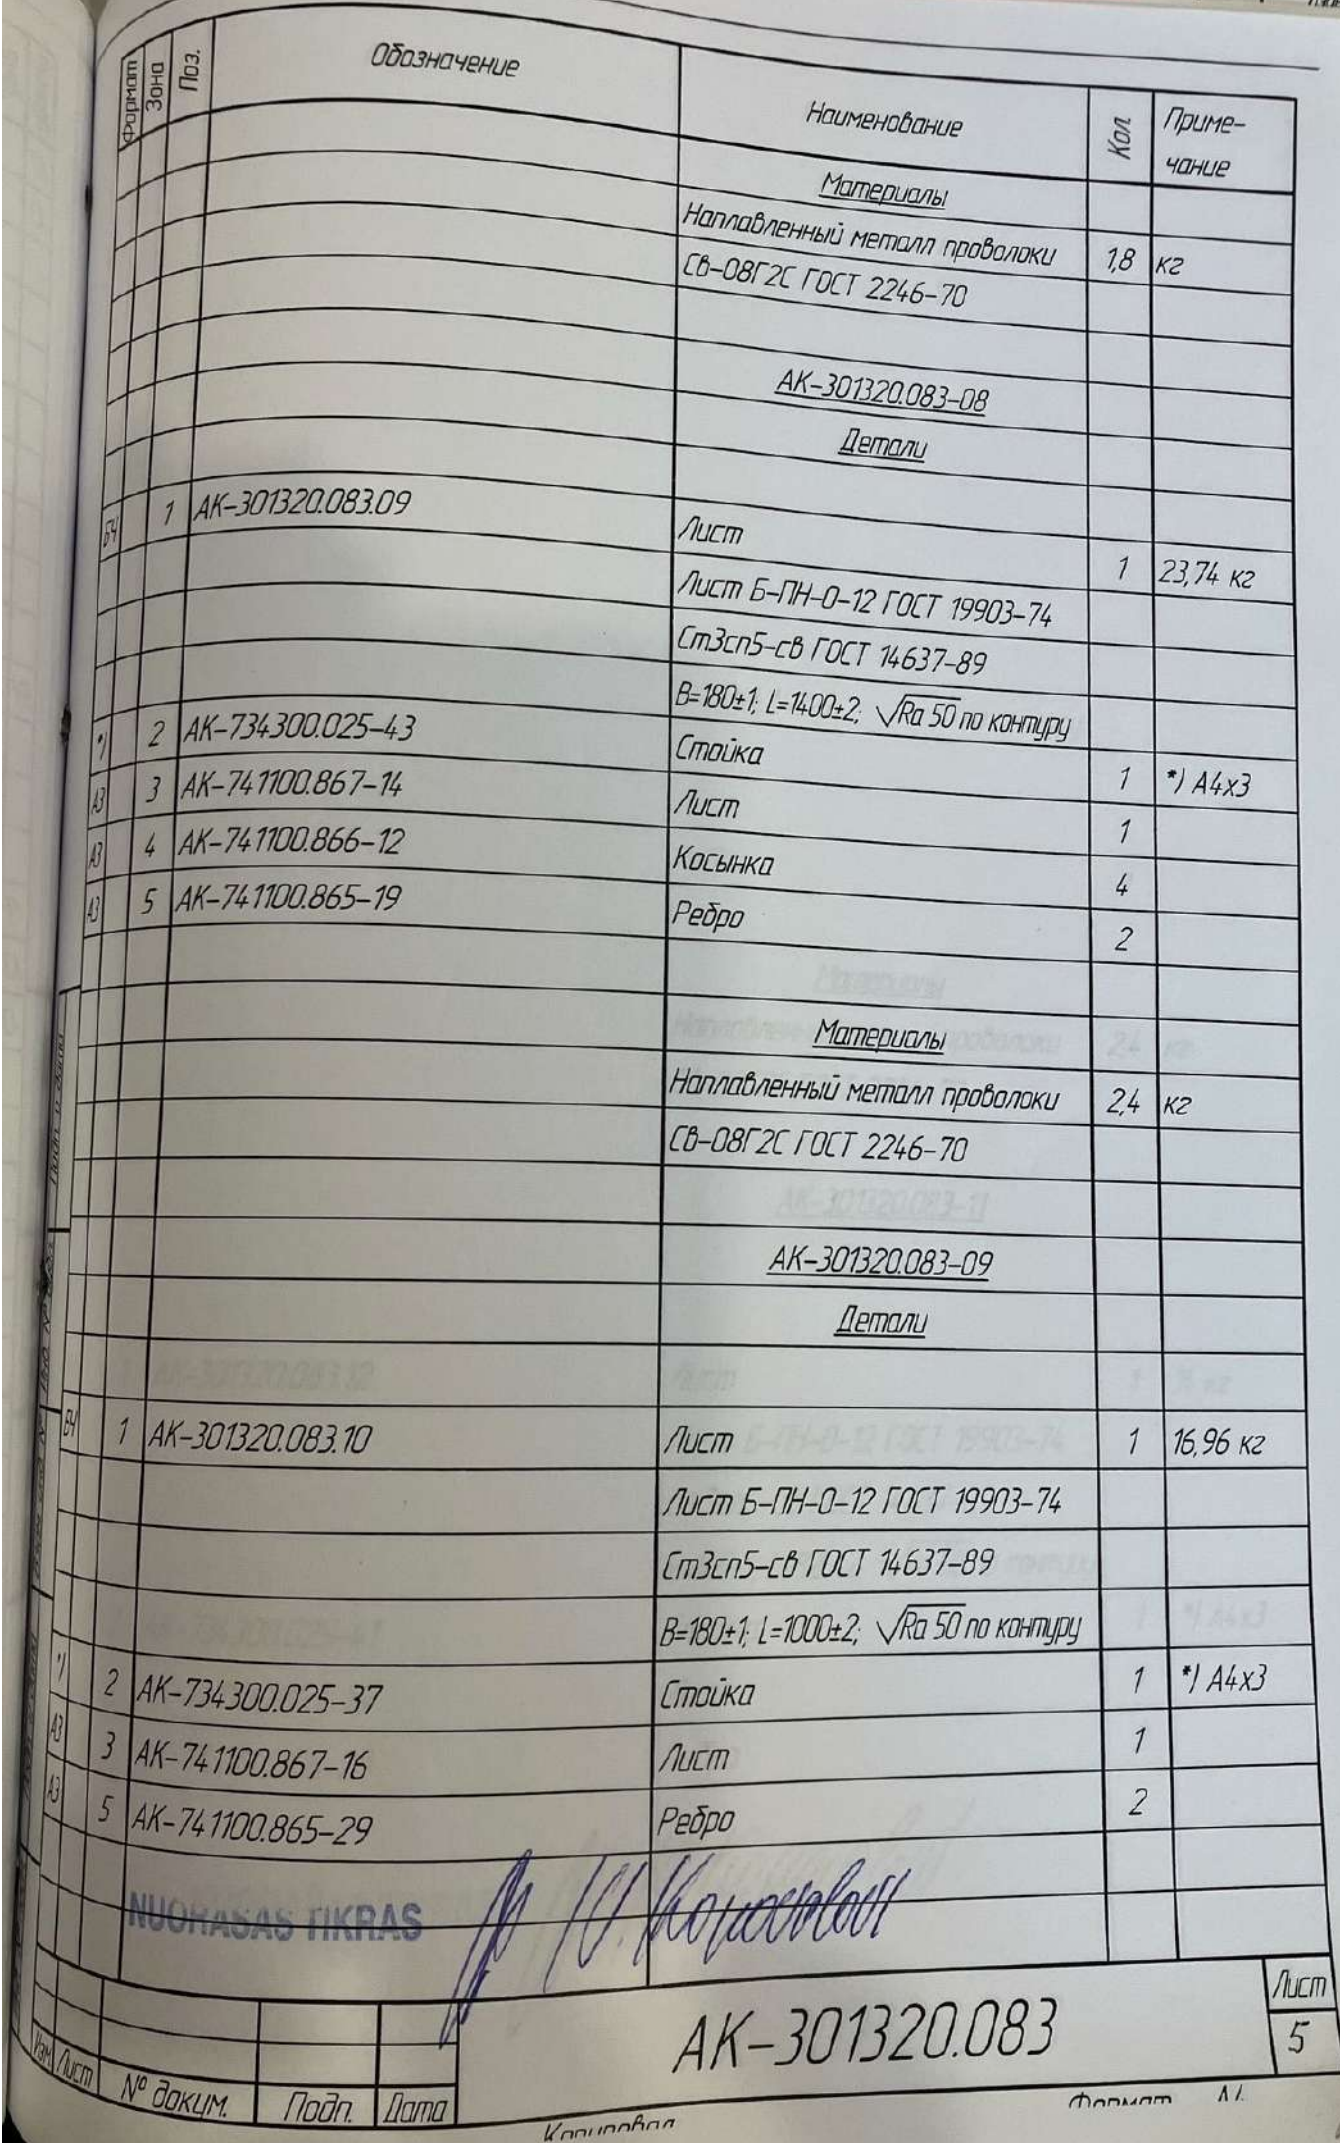 Формат Зона Поз. Обозначение Наименование Кол. Приме-
чание
Материалы
Наплавленный металл проволоки 1,8 кг
Св-08Г2С ГОСТ 2246-70
АК-301320.083-08
Детали
БЧ 1 АК-301320.083.09 Лист 1 23,74 кг
Лист Б-ПН-О-12 ГОСТ 19903-74
Ст3сп5-св ГОСТ 14637-89
B=180±1; L=1400±2; √Ra 50 по контуру
*) 2 АК-734300.025-43 Стойка 1 *) А4х3
А3 3 АК-741100.867-14 Лист 1
А3 4 АК-741100.866-12 Косынка 4
А3 5 АК-741100.865-19 Ребро 2
Материалы
Наплавленный металл проволоки 2,4 кг
Св-08Г2С ГОСТ 2246-70
АК-301320.083-09
Детали
БЧ 1 АК-301320.083.10 Лист 1 16,96 кг
Лист Б-ПН-О-12 ГОСТ 19903-74
Ст3сп5-св ГОСТ 14637-89
B=180±1; L=1000±2; √Ra 50 по контуру
*) 2 АК-734300.025-37 Стойка 1 *) А4х3
А3 3 АК-741100.867-16 Лист 1
А3 5 АК-741100.865-29 Ребро 2
NUORAŠAS TIKRAS
АК-301320.083
Лист
5
Изм Лист № докум. Подп. Дата
Копировал Формат А4